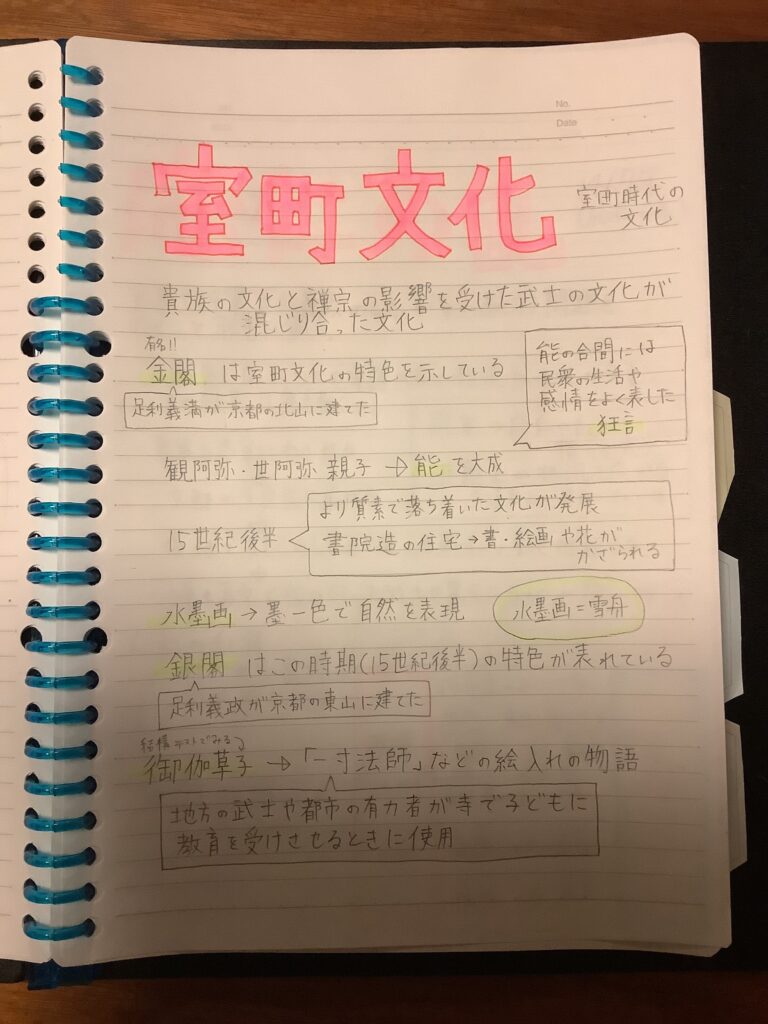 No.
Date
室町文化
室町時代の
文化
貴族の文化と禅宗の影響を受けた武士の文化が
混じり合った文化
有名!!
金閣 は室町文化の特色を示している
足利義満が京都の北山に建てた
能の合間には
民衆の生活や
感情をよく表した
狂言
観阿弥・世阿弥 親子 → 能 を大成
15世紀後半
より質素で落ち着いた文化が発展
書院造の住宅→書・絵画や花が
かざられる
水墨画 → 墨一色で自然を表現
水墨画=雪舟
銀閣 はこの時期(15世紀後半)の特色が表れている
足利義政が京都の東山に建てた
結構テストでみる
御伽草子 → 「一寸法師」などの絵入れの物語
地方の武士や都市の有力者が寺で子どもに
教育を受けさせるときに使用